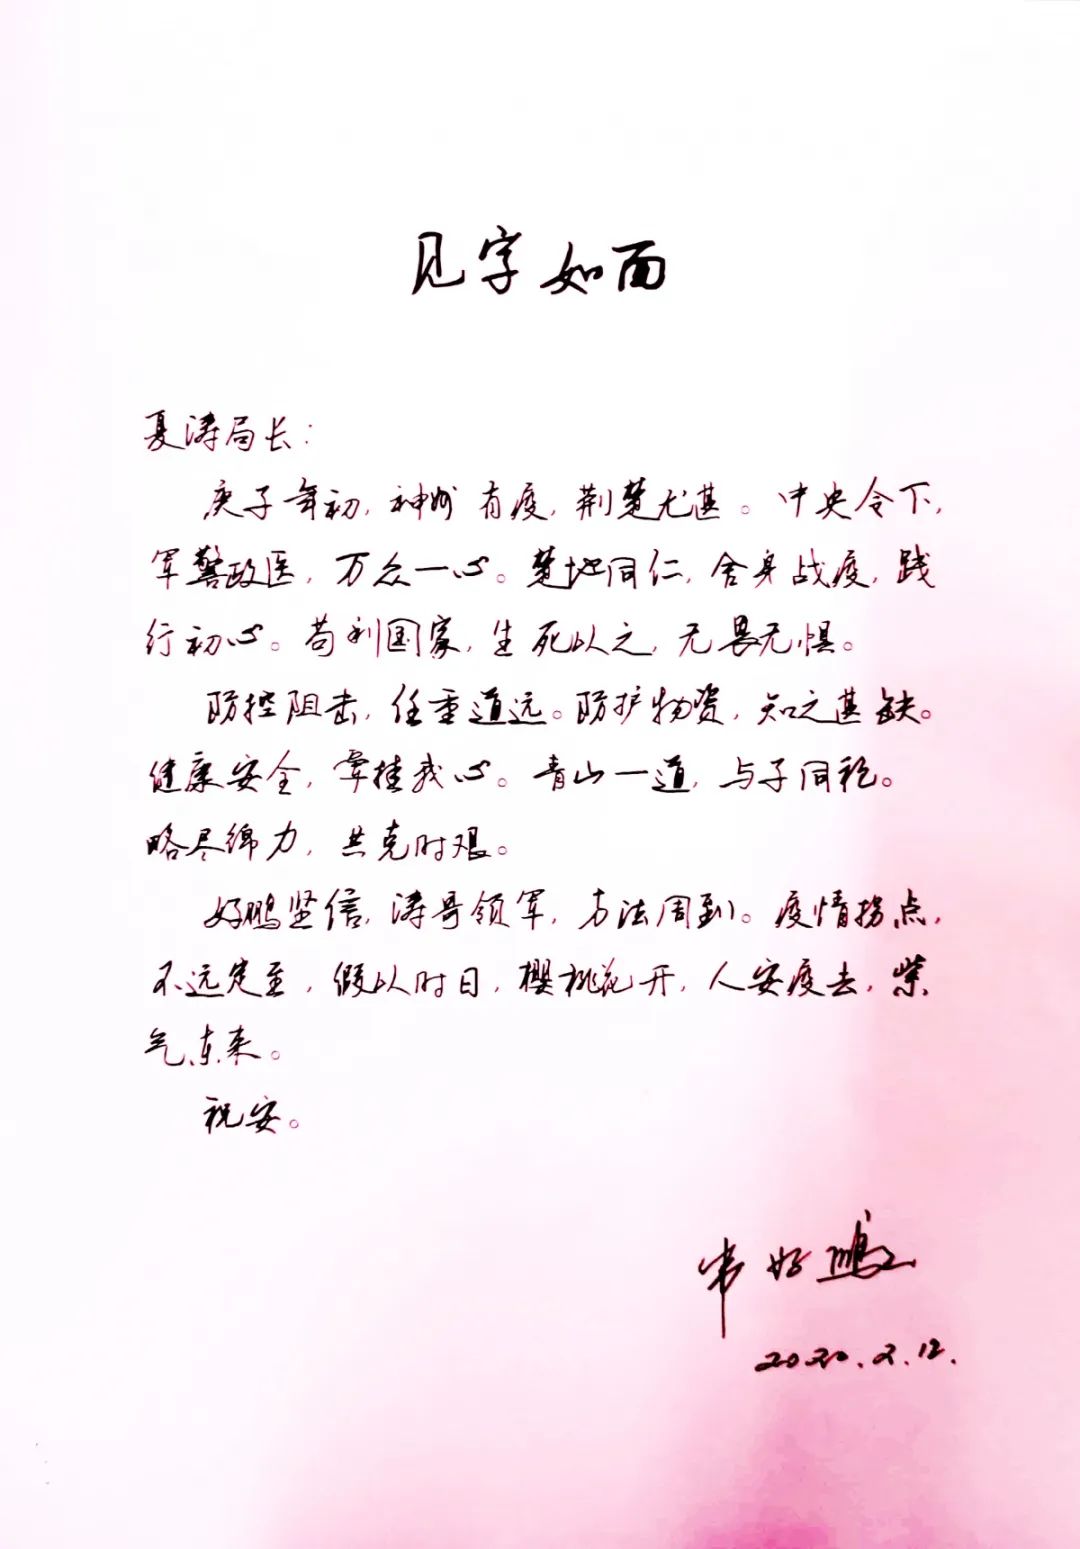 见字如面
夏涛局长：
庚子年初，神州有疫，荆楚尤甚。中央令下，
军警政医，万众一心。楚地同仁，舍身战疫，践
行初心。苟利国家，生死以之，无畏无惧。
防控阻击，任重道远。防护物资，知之甚缺。
健康安全，牵挂我心。青山一道，与子同袍。
略尽绵力，共克时艰。
好鹏坚信，涛哥领军，方法周到。疫情拐点，
不远定至，假以时日，樱桃花开，人安疫去，紫
气东来。
祝安。
常好鹏
2020.2.12.